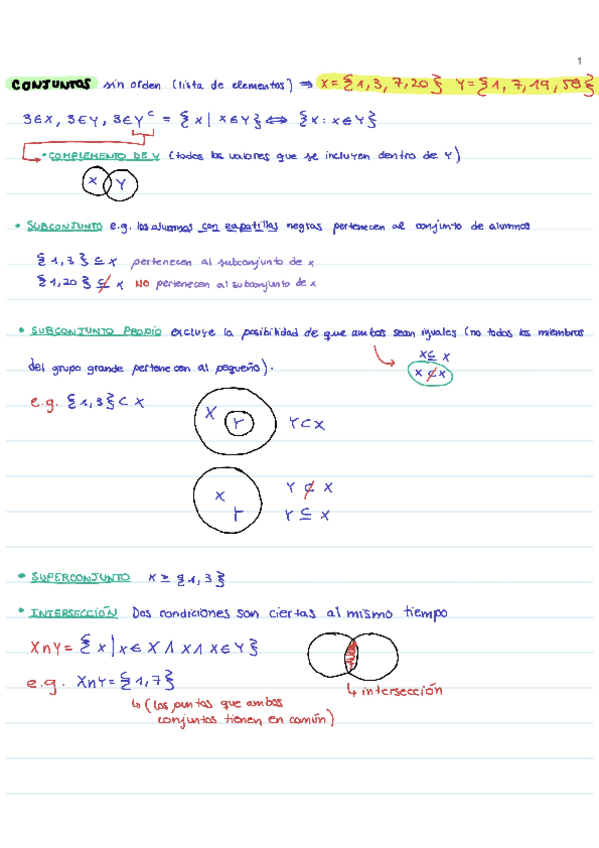 1
CONJUNTOS sin orden (lista de elementos) ⇒ X = {1, 3, 7, 20} Y = {1, 7, 19, 58}
3 ∈ X, 3 ∈ Y, 3 ∈ Y^c = {x | x ∈ Y} ⟺ {x : x ∈ Y}
• COMPLEMENTO DE Y (todos los valores que se incluyen dentro de Y)
X Y
• SUBCONJUNTO e.g. los alumnos con zapatillas negras pertenecen al conjunto de alumnos
{1, 3} ⊆ X pertenecen al subconjunto de x
{1, 20} ⊈ X NO pertenecen al subconjunto de x
• SUBCONJUNTO PROPIO excluye la posibilidad de que ambos sean iguales (no todos los miembros
del grupo grande pertenecen al pequeño).
X ⊆ X
X ⊄ X
e.g. {1, 3} ⊂ X
X Y Y ⊂ X
X Y Y ⊄ X
Y ⊆ X
• SUPERCONJUNTO X ≥ {1, 3}
• INTERSECCIÓN Dos condiciones son ciertas al mismo tiempo
X∩Y = {x | x ∈ X ∧ x ∧ x ∈ Y}
e.g. X∩Y = {1, 7}
↳ intersección
↳ (los puntos que ambos
conjuntos tienen en común)